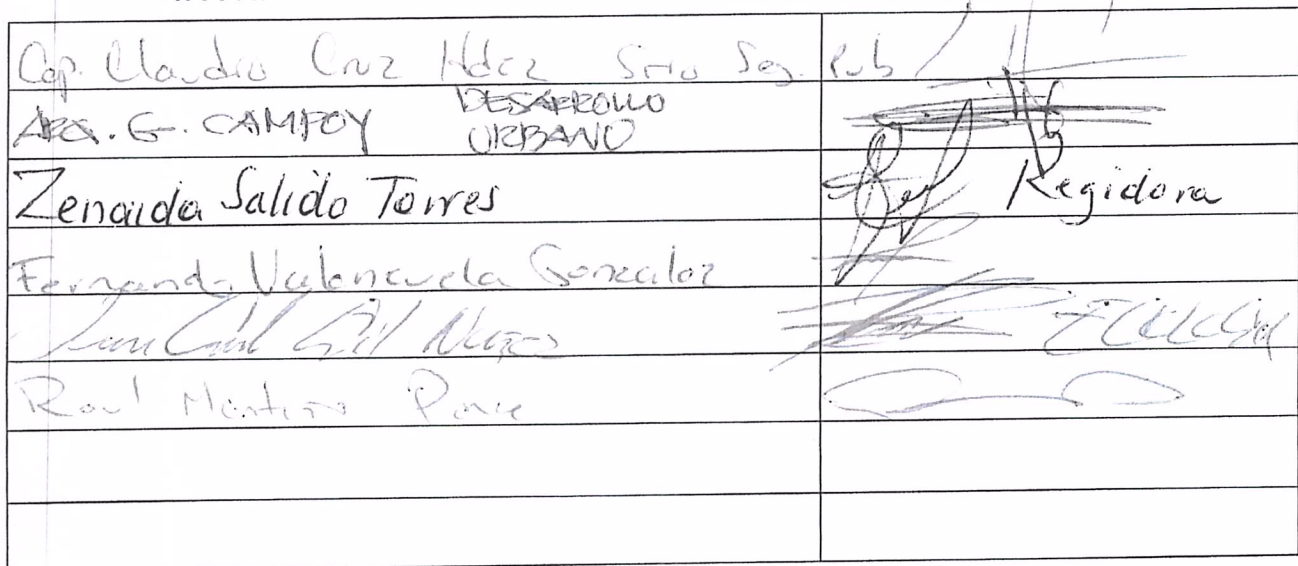 Cap. Claudio Cruz Hdez Srio Seg. Pub
ARQ. G. CAMPOY DESARROLLO URBANO
Zenaida Salido Torres Regidora
Fernando Valenzuela Gonzalez
Juan Gil
Raul Ponce